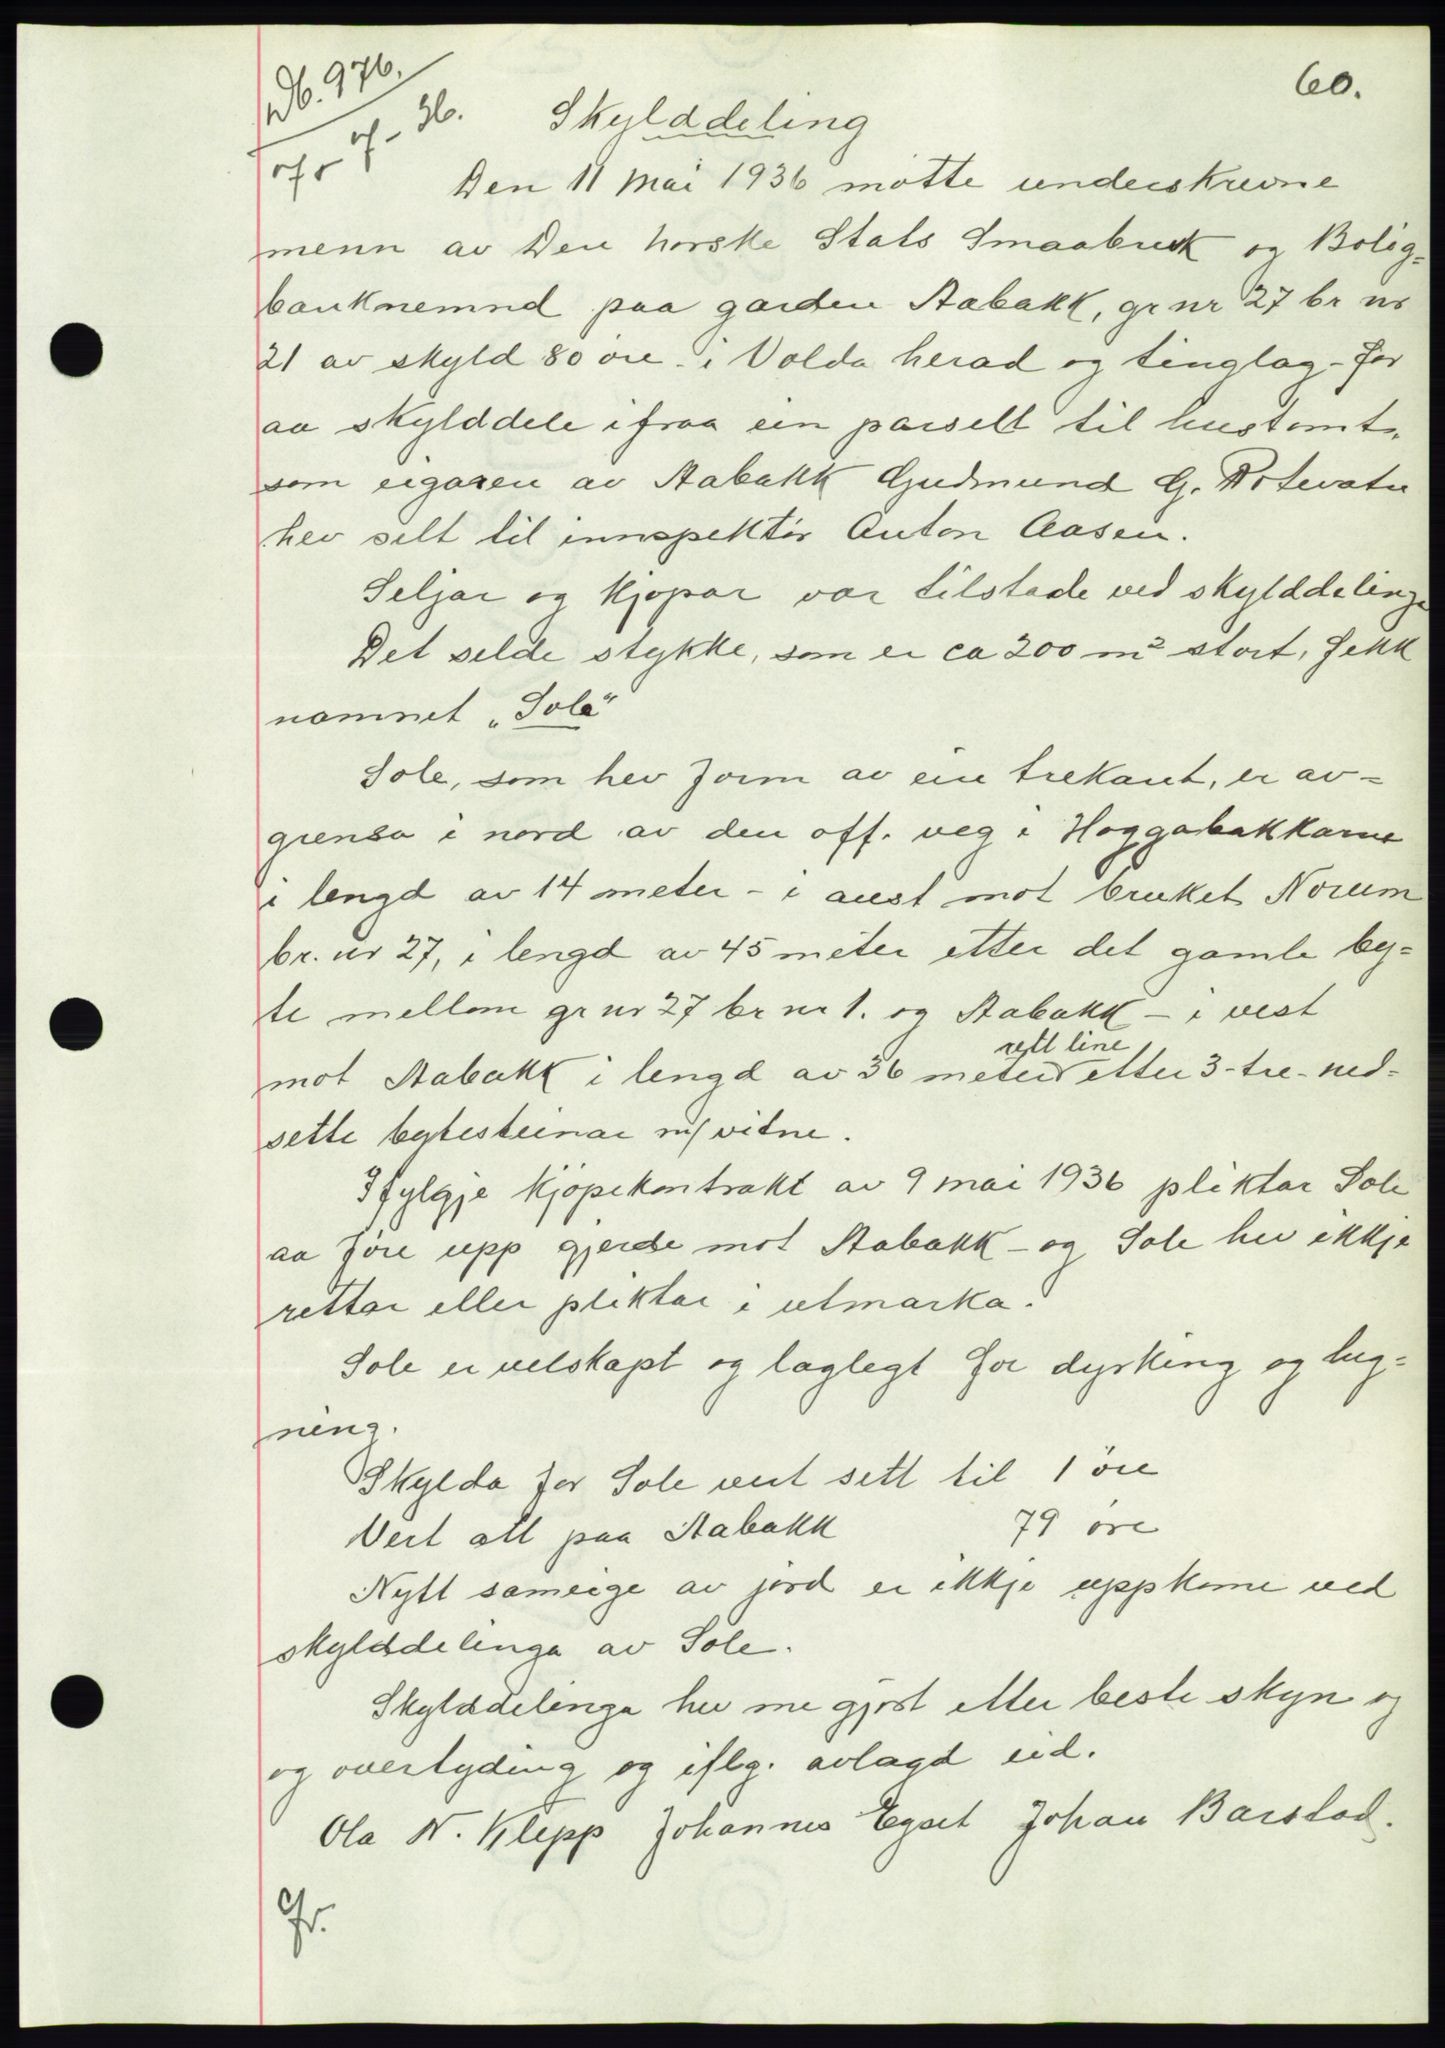 Db. 976.
7/7-36.
60.
Skylddeling
Den 11 mai 1936 møtte underskrevne
menn av Den norske Stats Smaabruk og Bolig=
banknemnd paa garden Aabakk, gr nr 27 br nr
21 av skyld 80 øre i Volda herad og tinglag - for
aa skylddele ifraa ein parsell til hustomt,
som eigaren av Aabakk Gudmund G. Rotevatn
hev selt til innspektør Anton Aasen.
Seljar og kjøpar var tilstade ved skylddelinga
Det selde stykke, som er ca 200 m² stort, fekk
namnet „Sole“
Sole, som hev form av ein trekant, er av=
grensa i nord av den off. veg i Hoggabakkarne
i lengd av 14 meter - i aust mot bruket Norum
br. nr 27, i lengd av 45 meter etter det gamle by=
te mellom gr nr 27 br nr 1. og Aabakk - i vest
rett line
mot Aabakk i lengd av 36 meter etter 3-tre-ned=
sette bytesteinar m/ vitne.
Ifylgje kjøpekontrakt av 9 mai 1936 pliktar Sole
aa føre upp gjerde mot Aabakk - og Sole hev ikkje
rettar eller pliktar i utmarka.
Sole er velskapt og laglegt for dyrking og byg=
ning.
Skylda for Sole vert sett til 1 øre
Vert att paa Aabakk 79 øre
Nytt sameige av jord er ikkje uppkome ved
skylddelinga av Sole.
Skylddelinga hev me gjort etter beste skyn og
og overtyding og iflg. avlagd eid.
Ola N. Klepp Johannes Egset Johan Barstad.